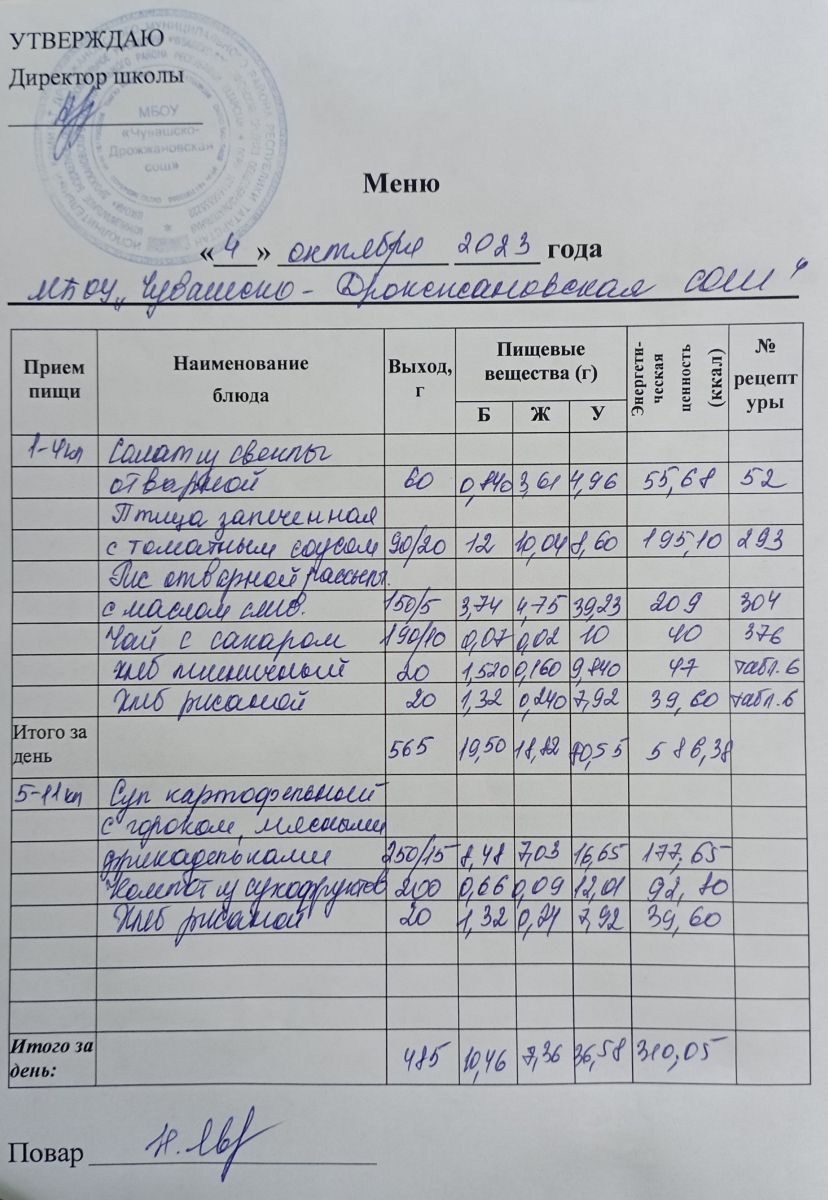 УТВЕРЖДАЮ
Директор школы
МБОУ
«Чувашско-
Дрожжановская
сош»
Меню
«4» октября 2023 года
МБОУ „Чувашско - Дрожжановская СОШ"
Прием пищи Наименование блюда Выход, г Пищевые вещества (г) Энергети-ческая ценность (ккал) № рецептуры
Б Ж У
1-4кл Салат из свеклы
отварной 60 0,840 3,61 4,96 55,68 52
Птица запеченная
с томатным соусом 90/20 12 10,04 8,60 195,10 293
Рис отварной рассыпч.
с маслом слив. 150/5 3,74 4,75 39,23 209 304
Чай с сахаром 190/10 0,07 0,02 10 40 376
Хлеб пшеничный 20 1,520 0,160 9,840 47 табл.6
Хлеб ржаной 20 1,32 0,240 7,92 39,60 табл.6
Итого за
день 565 19,50 18,82 80,55 586,38
5-11кл Суп картофельный
с горохом, мясными
фрикадельками 250/15 8,48 7,03 16,65 177,65
Компот из сухофруктов 200 0,66 0,09 12,01 92,80
Хлеб ржаной 20 1,32 0,24 7,92 39,60
Итого за
день: 485 10,46 7,36 36,58 310,05
Повар